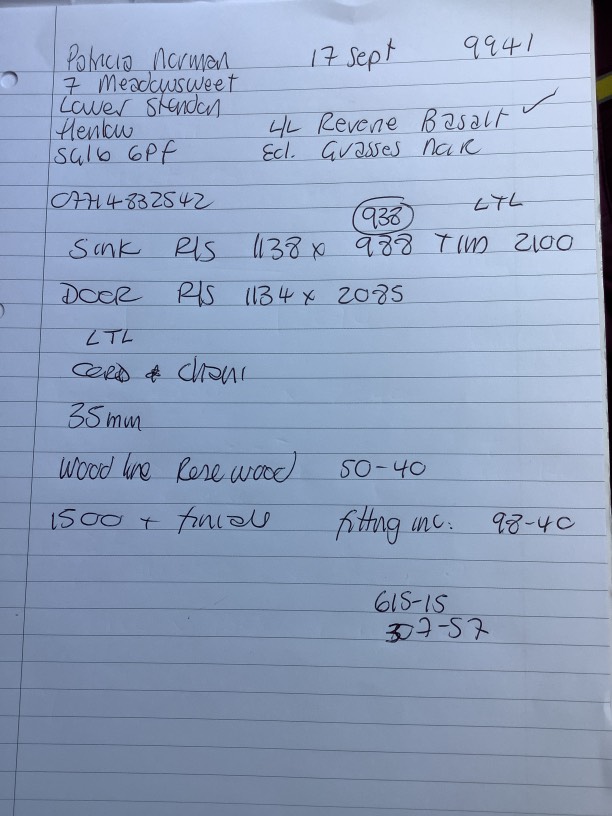 Patricia Norman 17 Sept 9941
7 Meadowsweet
Lower Stondon
Henlow 4L Reverie Basalt ✓
SG16 6PF Ecl. Grasses Noir
07714832542
938 LTL
Sink R/S 1138 x 988 TIW 2100
DOOR R/S 1134 x 2085
LTL
Cord & Chain
35mm
Wood line Rosewood 50-40
1500 + finials fitting inc: 98-40
615-15
307-57